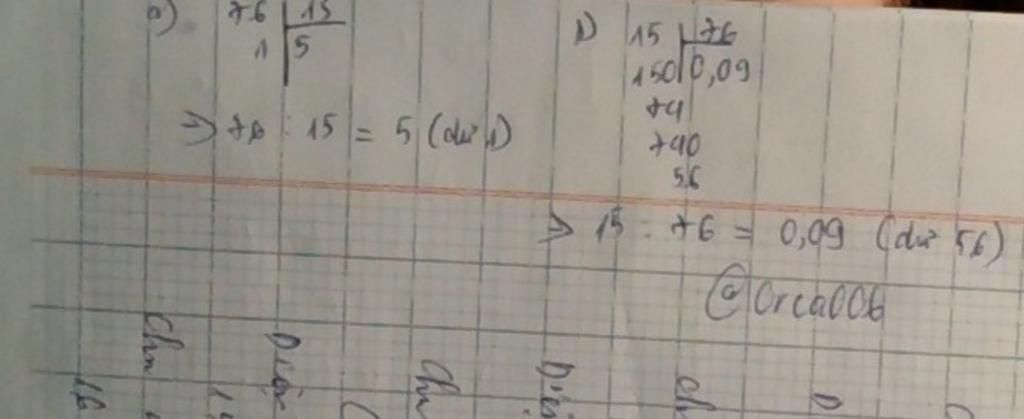 a) 76 | 15
1 | 5
=> 76 : 15 = 5 (dư 1)
b) 15 | 76
150 | 0,09
74
740
56
=> 15 : 76 = 0,09 (dư 56)
@Orca006
Chu
Điện
Chu
Điện
Ch
16